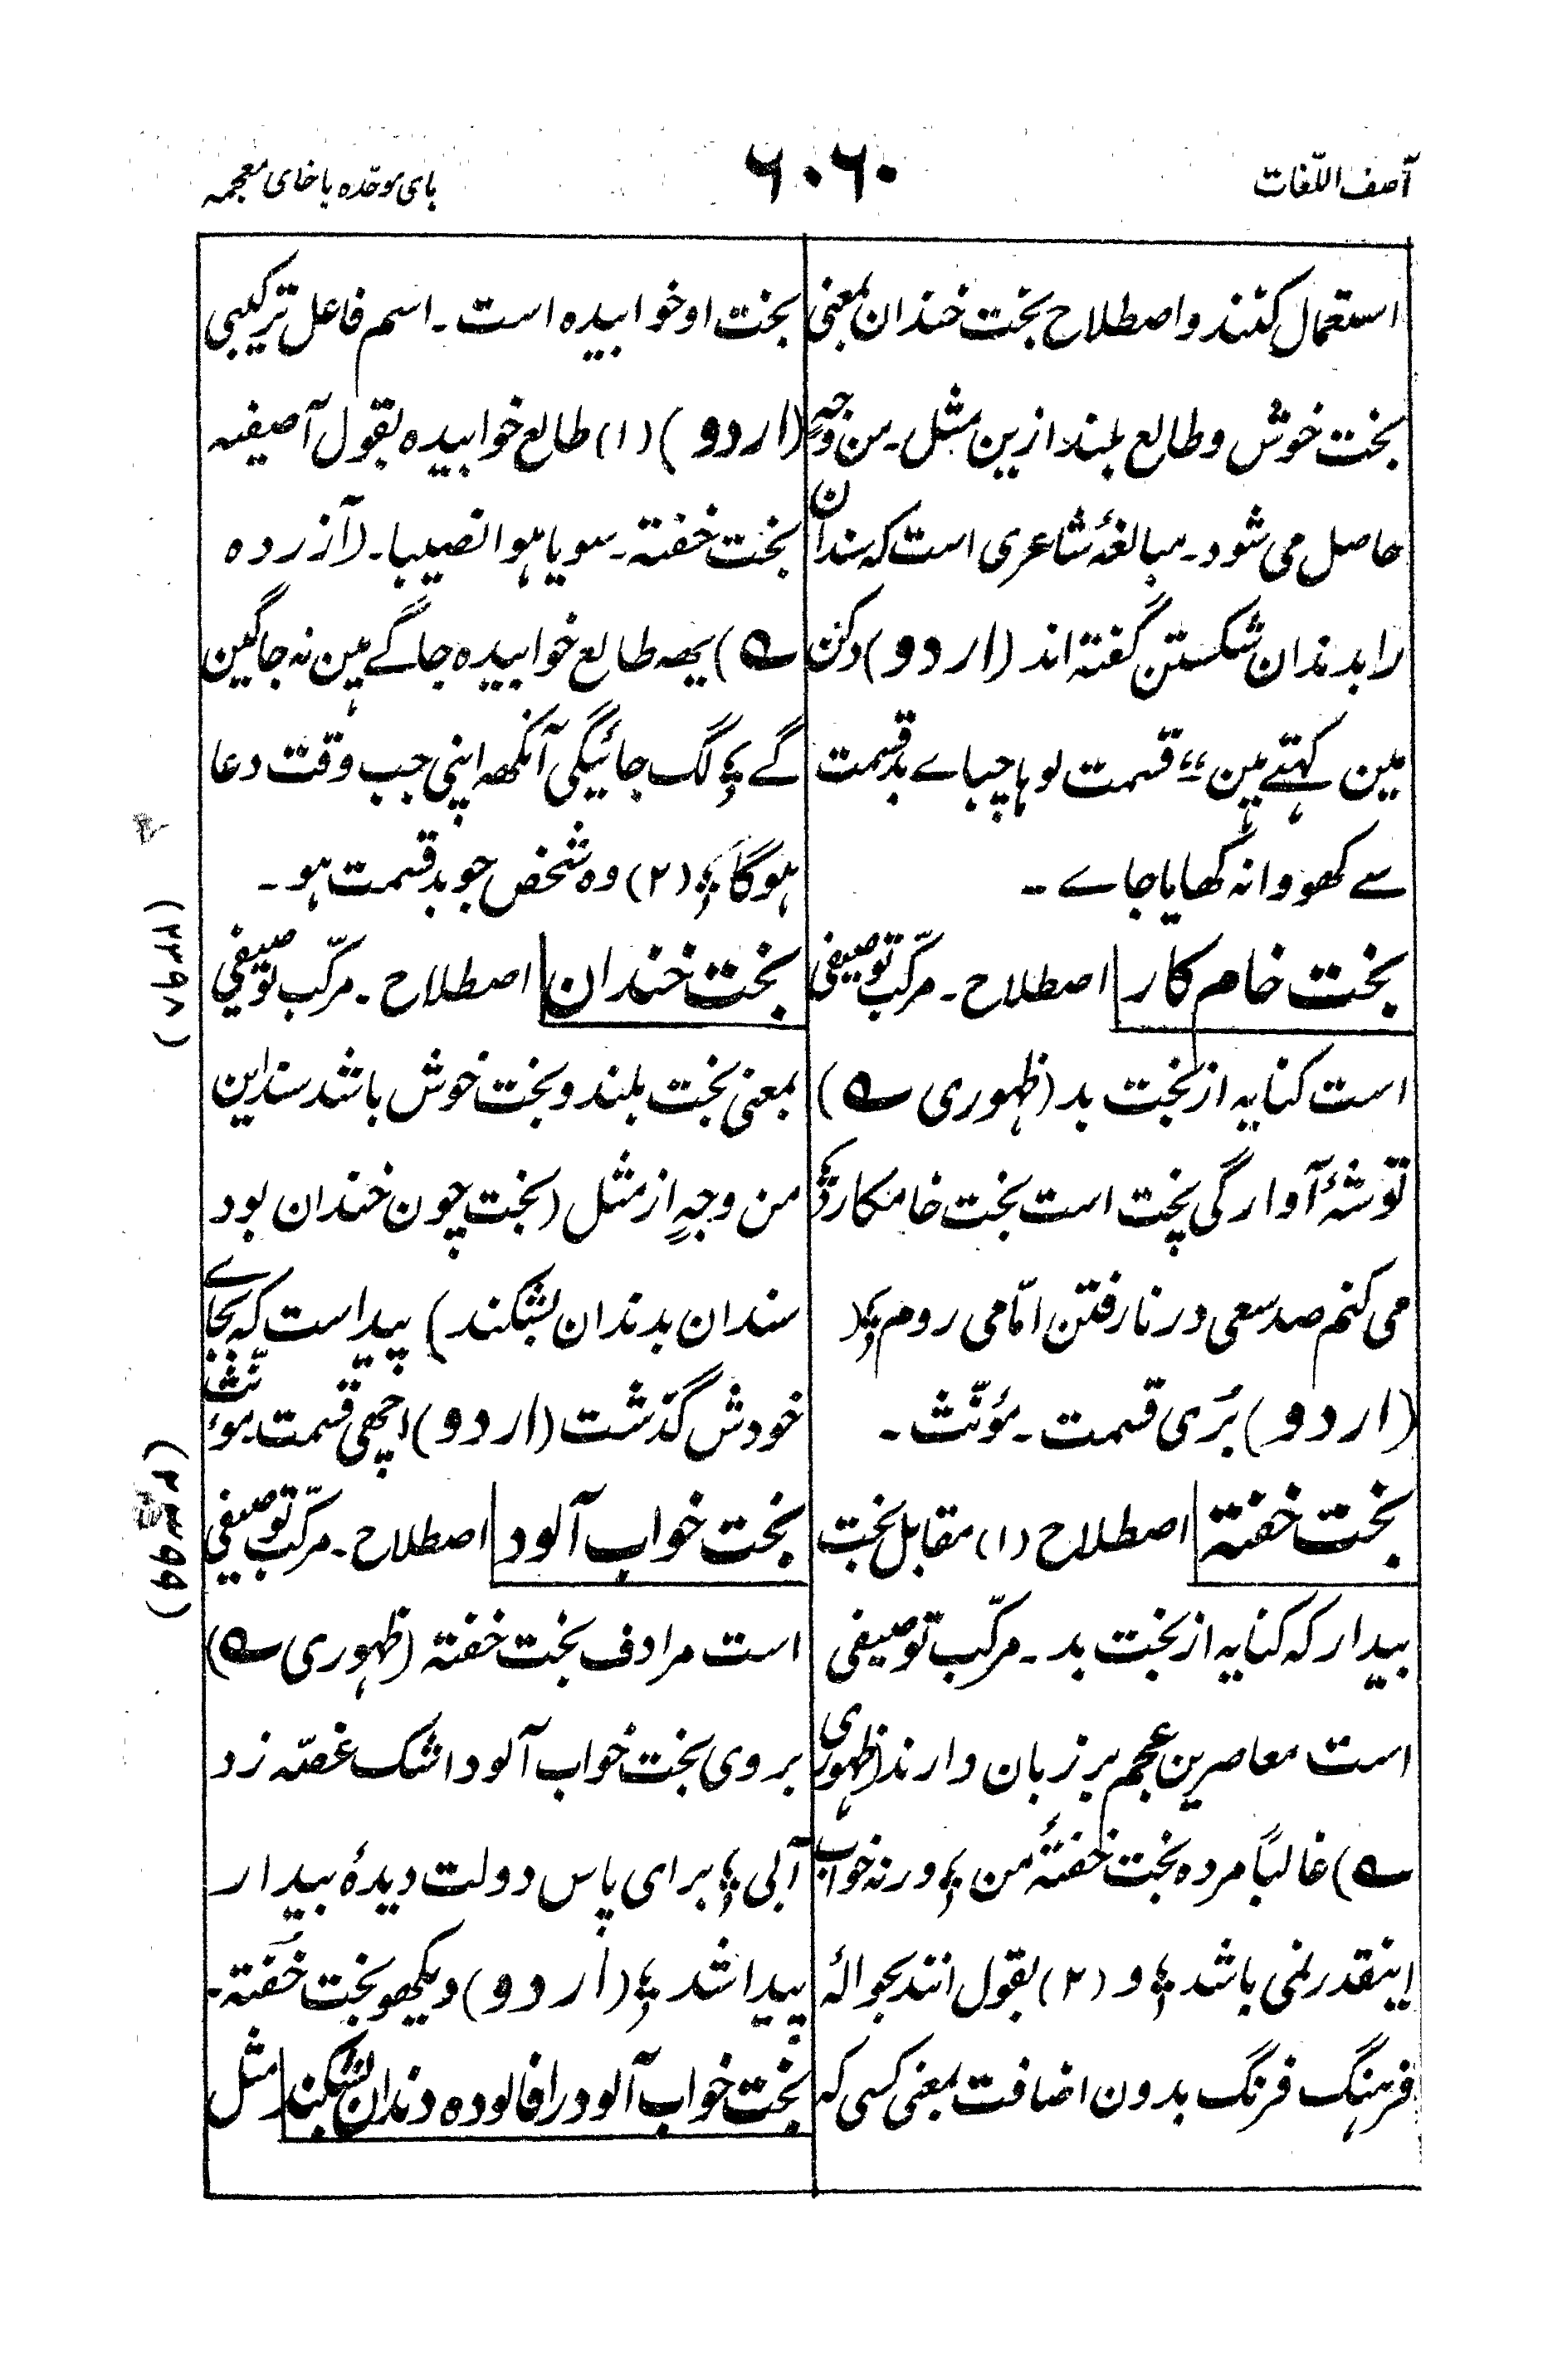 آصف اللّغات
۶۰۶۰
بای موحّده با خای معجمہ
استعمال کنند و اصطلاح بخت خندان بمعنی
بخت خوش و طالع بلند ازین مثل ۔ من وجہٍ
حاصل می شود ۔ مبالغۂ شاعری است کہ سندان
را بدندان شکستن گفتہ اند (اردو) دکن
مین کہتے ہین ،، قسمت لوہا چباے بدقسمت
سے کھووا نہ کھایا جاے ۔
بخت خام کار اصطلاح ۔ مرکّب توصیفی
است کنایہ از بخت بد (ظہوری ؎)
توشۂ آوارگی پخت است بخت خامکار ؛
می کنم صد سعی در نا رفتن امّا می روم ؛؛
(اردو) بُری قسمت ۔ مؤنّث ۔
بخت خفتہ اصطلاح (۱) مقابل بخت
بیدار کہ کنایہ از بخت بد ۔ مرکّب توصیفی
است معاصرین عجم بر زبان دارند (ظہوری
؎) غالباً مردہ بخت خفتۂ من ؛ ورنہ خواب
اینقدر نمی باشد ؛ و (۲) بقول انند بحوالۂ
فرہنگ فرنگ بدون اضافت بمعنی کسی کہ
بخت او خوابیدہ است ۔ اسم فاعل ترکیبی
(اردو) (۱) طالع خوابیدہ بقول آصفیہ
بخت خفتہ ۔ سویا ہوا نصیبا ۔ (آزردہ
؎) یہہ طالع خوابیدہ جاگے ہین نہ جاگین
گے ؛ لگ جائیگی آنکھہ اپنی جب وقت دعا
ہوگا ؛ (۲) وہ شخص جو بدقسمت ہو ۔
بخت خندان اصطلاح ۔ مرکّب توصیفی
بمعنی بخت بلند و بخت خوش باشد سند این
من وجہٍ از مثل (بخت چون خندان بود
سندان بدندان بشکند) پیداست کہ بجاے
خودش گذشت (اردو) اچھی قسمت مؤنّث
بخت خواب آلود اصطلاح ۔ مرکّب توصیفی
است مرادف بخت خفتہ (ظہوری ؎)
بروی بخت خواب آلود اشک غصّہ زد
آبی ؛ برای پاس دولت دیدۂ بیدار
پیدا شد ؛ (اردو) دیکھو بخت خفتہ ۔
بخت خواب آلود را فالودہ دندان بشکند مثل
(۲۳۹۸)
(۲۳۹۹)